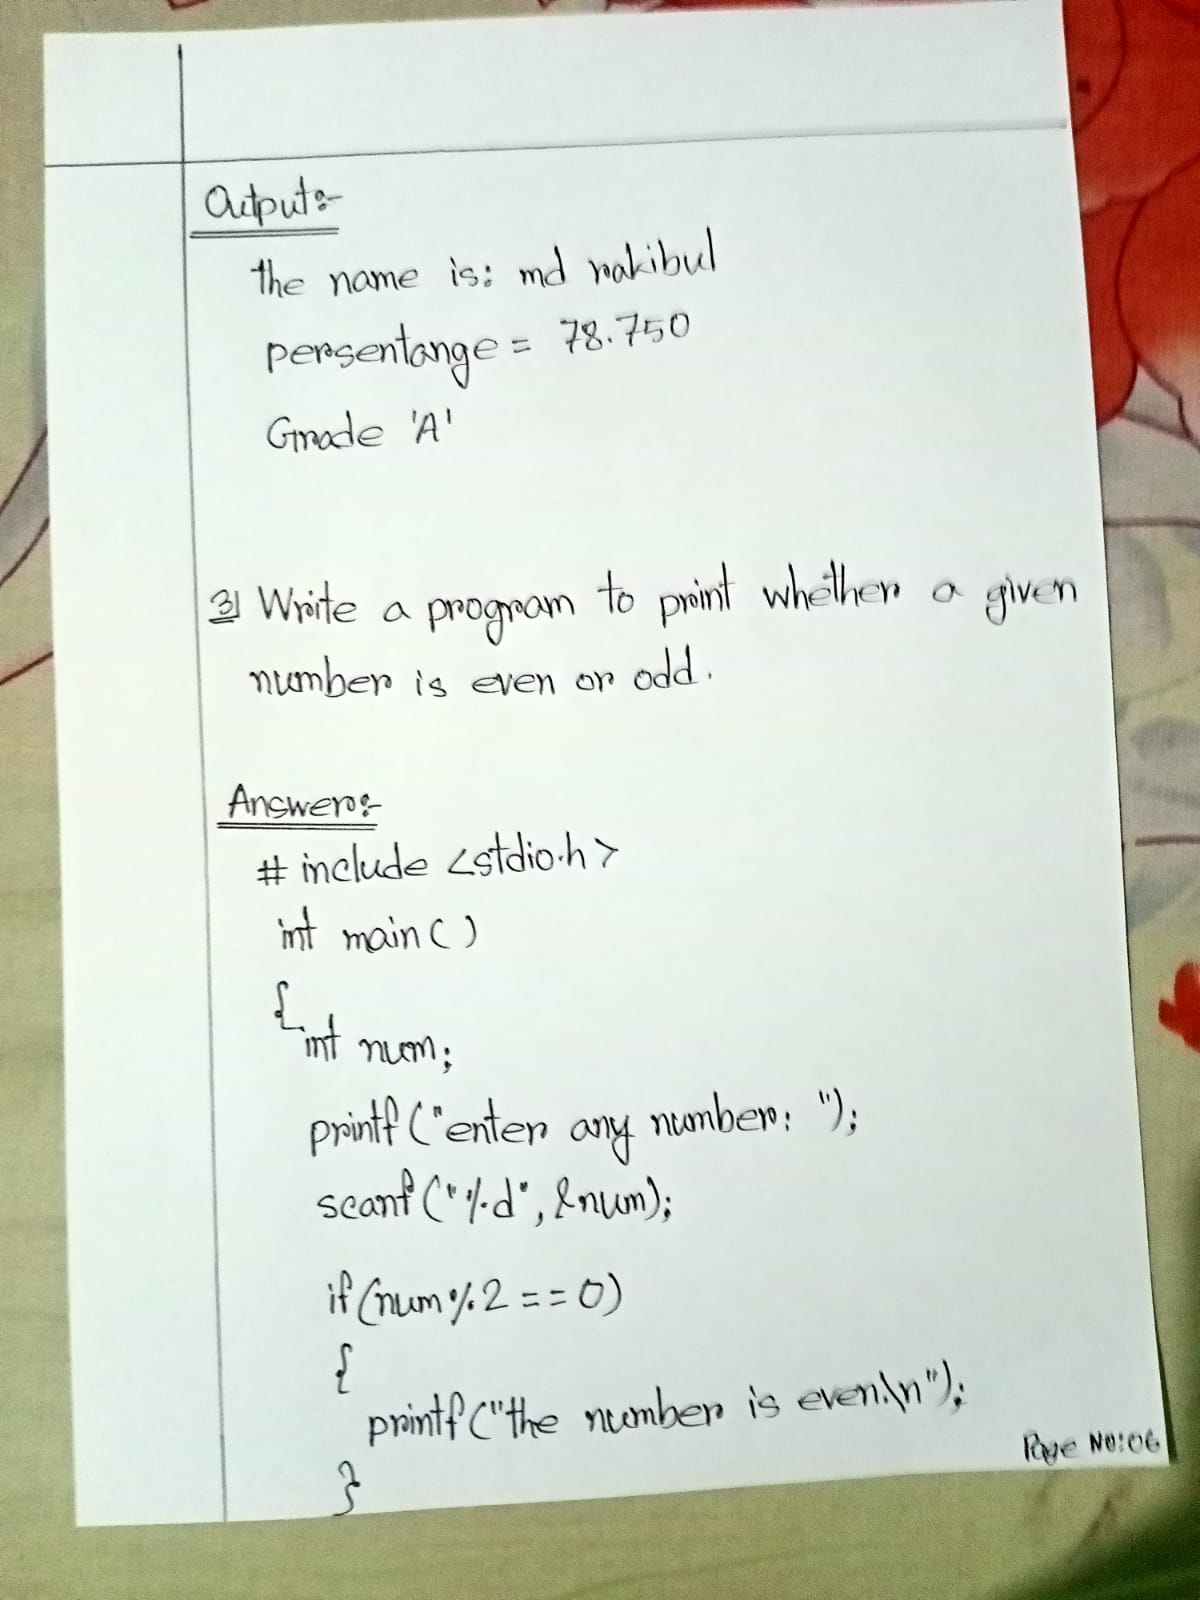 Output:-
the name is: md rakibul
persentange = 78.750
Grade 'A'
3] Write a program to print whether a given
number is even or odd.
Answer:-
# include <stdio.h>
int main()
{
int num;
printf("enter any number: ");
scanf("%d", &num);
if(num%2==0)
{
printf("the number is even.\n");
}
Page No:06